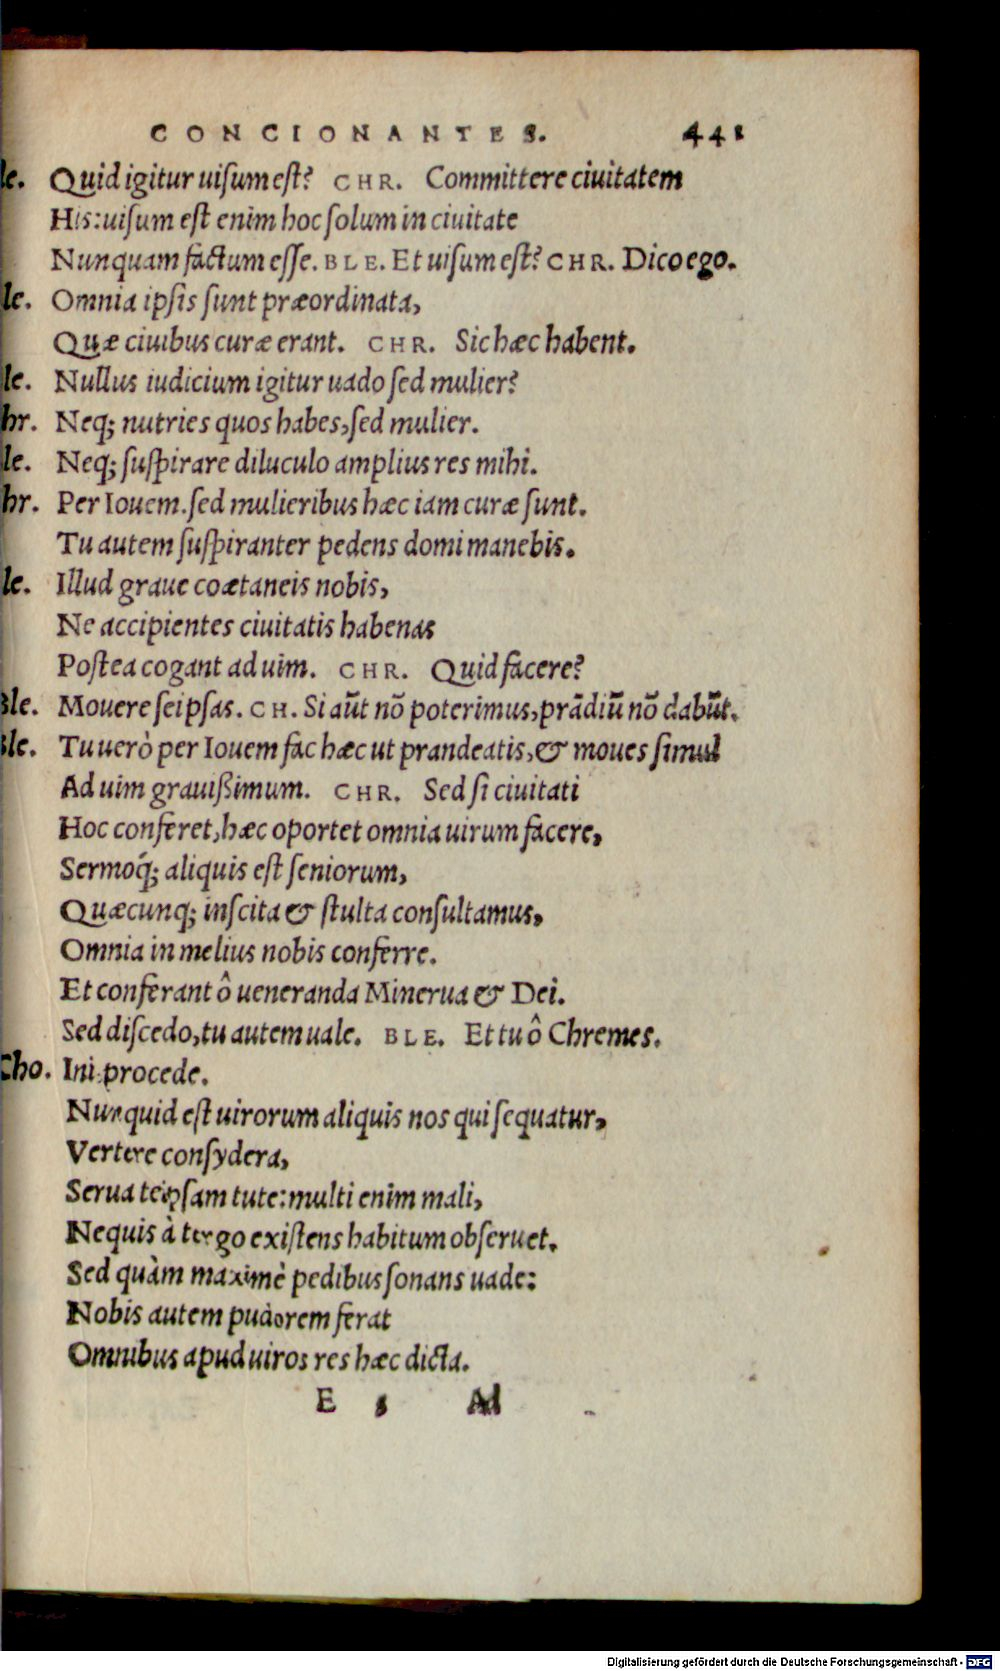 CONCIONANTES. 441
le. Quid igitur uiſum eſt? CHR. Committere ciuitatem
His: uiſum eſt enim hoc ſolum in ciuitate
Nunquam factum eſſe. BLE. Et uiſum eſt? CHR. Dico ego.
le. Omnia ipſis ſunt præordinata,
Quæ ciuibus curæ erant. CHR. Sic hæc habent.
le. Nullus iudicium igitur uado ſed mulier?
hr. Neq; nutries quos habes, ſed mulier.
le. Neq; ſuſpirare diluculo amplius res mihi.
hr. Per Iouem. ſed mulieribus hæc iam curæ ſunt.
Tu autem ſuſpiranter pedens domi manebis.
le. Illud graue coætaneis nobis,
Ne accipientes ciuitatis habenas
Poſtea cogant ad uim. CHR. Quid facere?
Ble. Mouere ſeipſas. CH. Si aūt nō poterimus, prādiū nō dabūt.
Ble. Tu uerò per Iouem fac hæc ut prandeatis, & moues ſimul
Ad uim grauißimum. CHR. Sed ſi ciuitati
Hoc conferet, hæc oportet omnia uirum facere,
Sermoq́; aliquis eſt ſeniorum,
Quæcunq; inſcita & ſtulta conſultamus,
Omnia in melius nobis conferre.
Et conferant ô ueneranda Minerua & Dei.
Sed diſcedo, tu autem uale. BLE. Et tu ô Chremes.
Cho. Ini procede.
Nunquid eſt uirorum aliquis nos qui ſequatur,
Vertere conſydera,
Serua teipſam tute: multi enim mali,
Nequis à tergo exiſtens habitum obſeruet.
Sed quàm maximè pedibus ſonans uade:
Nobis autem pudorem ferat
Omnibus apud uiros res hæc dicta.
E 5 Ad
Digitalisierung gefördert durch die Deutsche Forschungsgemeinschaft - DFG